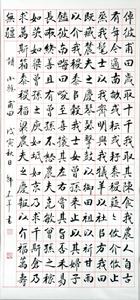 倬彼甫田歲取十千我取其陳食我農人自古
有年今適南畝或耘或耔黍稷薿薿攸介攸
止烝我髦士以我齊明與我犧羊以社以方我
田既臧農夫之慶琴瑟擊鼓以御田祖以祈
甘雨以介我稷黍以穀我士女曾孫來止以其婦子
饁彼南畝田畯至喜攘其左右嘗其旨否禾
易長畝終善且有曾孫不怒農夫克敏曾孫之
稼如茨如梁曾孫之庾如坻如京乃求千斯倉乃
求萬斯箱黍稷稻粱農夫之慶報以介福萬壽
無疆
詩 小雅 甫田 戊寅秋日 書